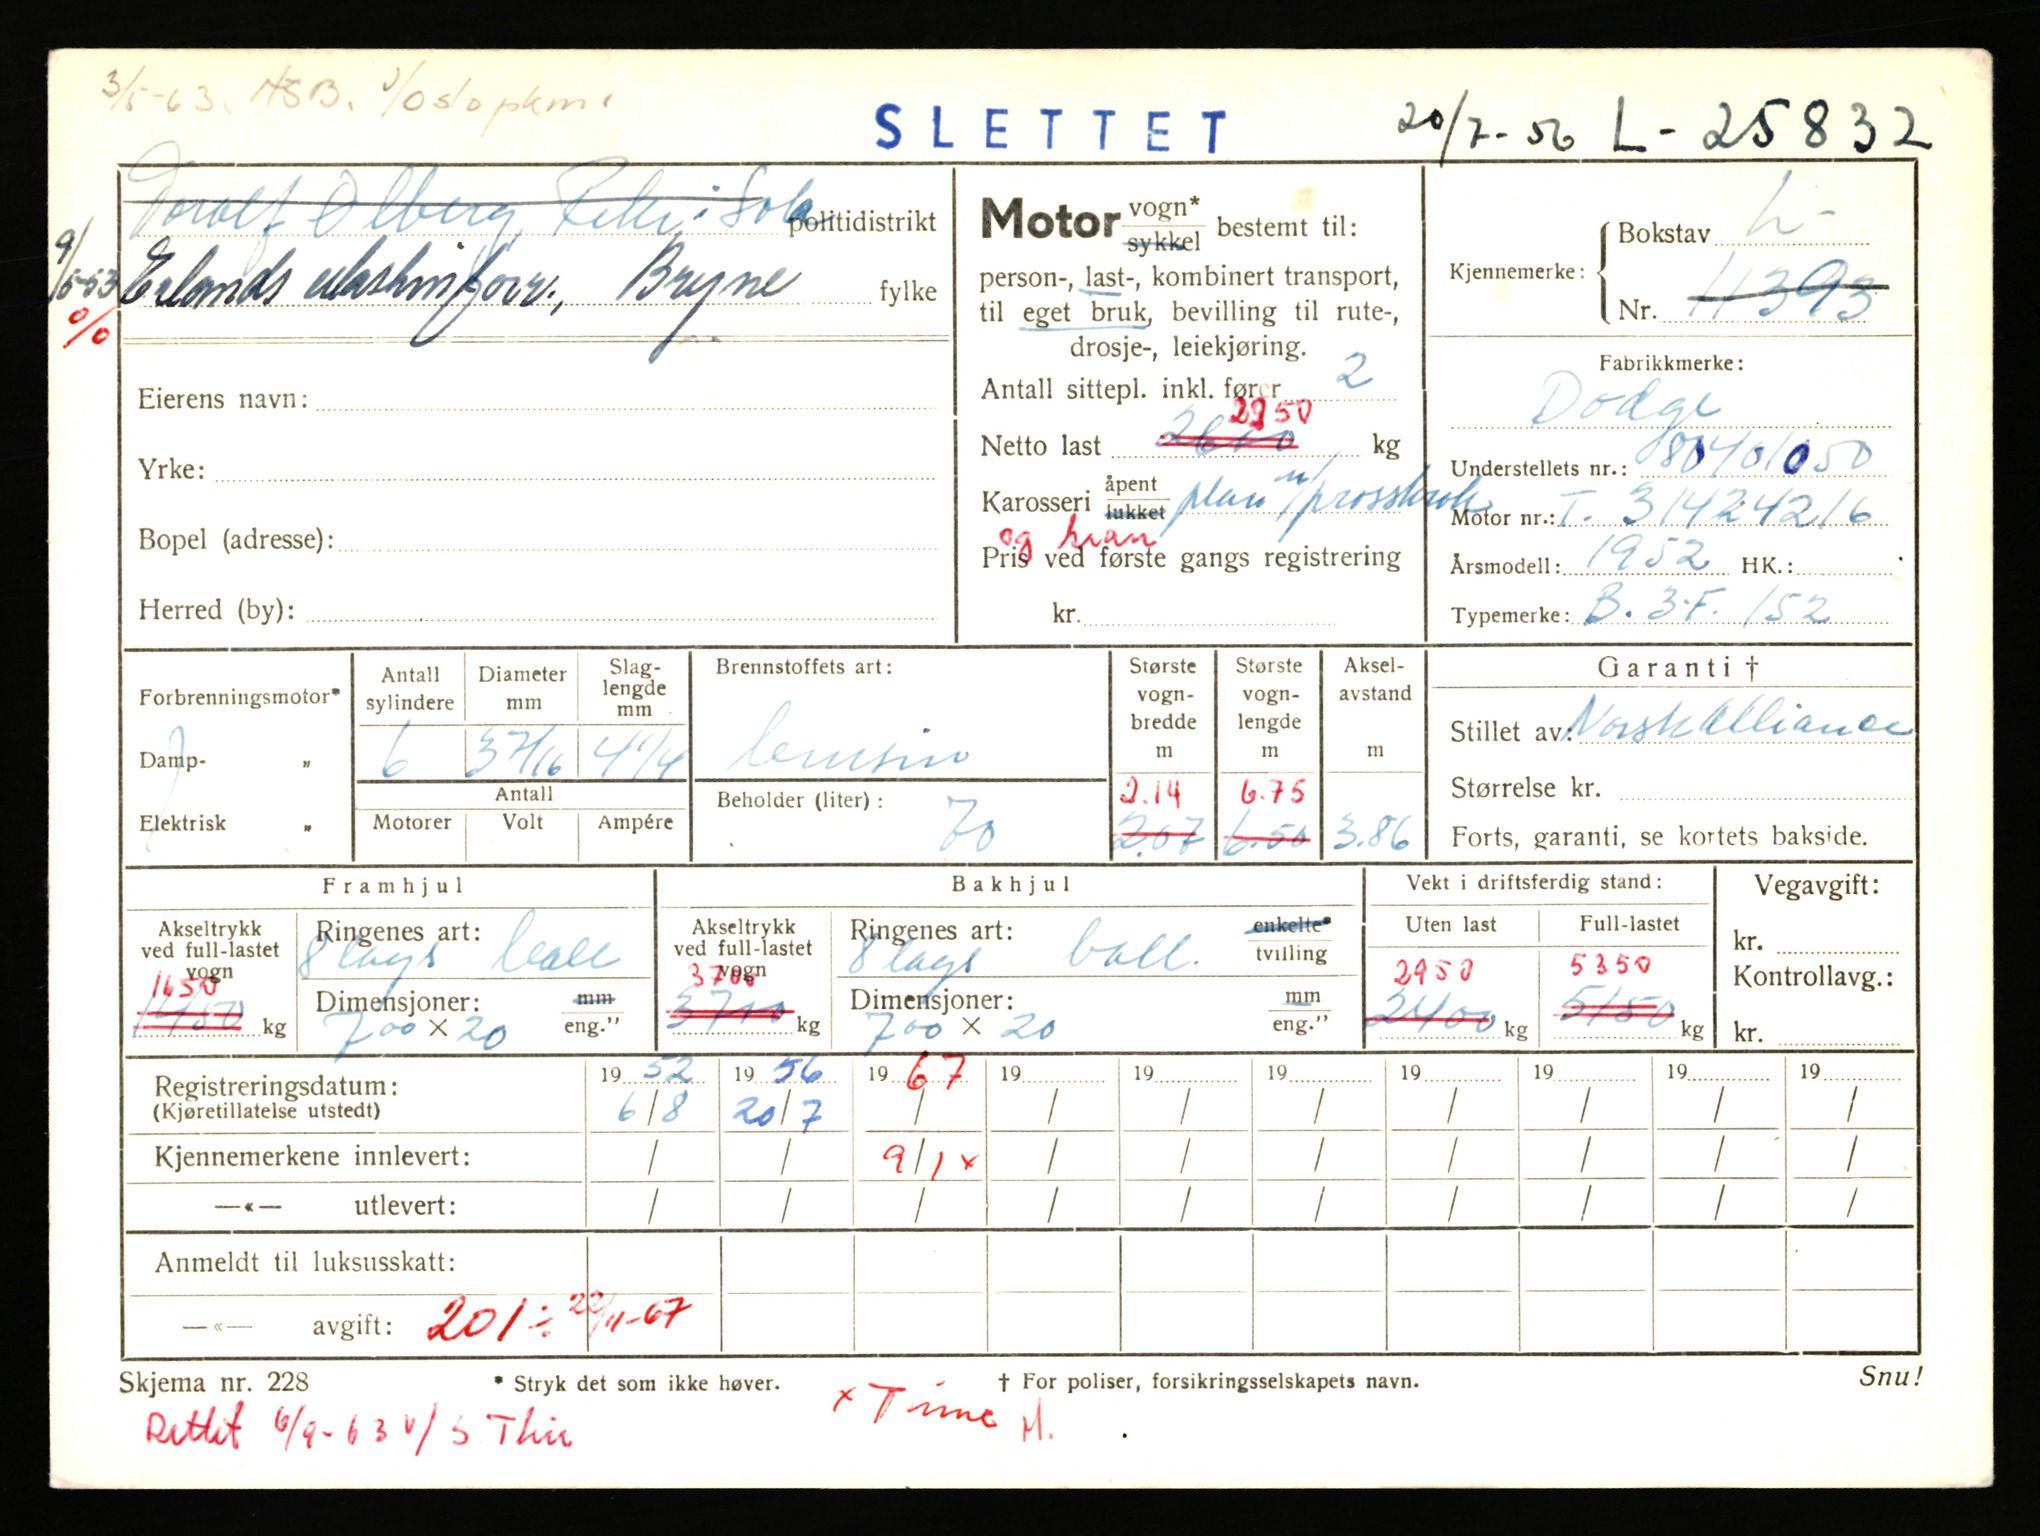 3/5-63. HSB. v/Oslo pkm.
SLETTET
20/7-56 L-25832
Toralf Olberg, politidistrikt
9/5-53 Erlands maskinforr., Bryne fylke
0/0
Eierens navn:
Yrke:
Bopel (adresse):
Herred (by):
Motor vogn* sykkel bestemt til:
person-, last-, kombinert transport,
til eget bruk, bevilling til rute-,
drosje-, leiekjøring.
Antall sittepl. inkl. fører 2
2250
Netto last 2610 kg
Karosseri åpent lukket plan m/
og kran
Pris ved første gangs registrering
kr.
Kjennemerke: Bokstav L-
Nr. 4393
Fabrikkmerke:
Dodge
Understellets nr.: 80401050
Motor nr.: T. 31424216
Årsmodell: 1952 HK.:
Typemerke: B.3.F. 152
Forbrenningsmotor*
Damp- „
Elektrisk „
Antall sylindere
6
Diameter mm
37/16
Slag-lengde mm
41/4
Antall
Motorer Volt Ampére
Brennstoffets art:
bensin
Beholder (liter): 70
Største vogn-bredde m
2.14
2.07
Største vogn-lengde m
6.75
6.50
Aksel-avstand m
3.86
Garanti †
Stillet av: Norsk Alliance
Størrelse kr.
Forts, garanti, se kortets bakside.
Framhjul
Akseltrykk ved full-lastet vogn
1650
1450 kg
Ringenes art:
8 lags ball
Dimensjoner: mm eng."
700 × 20
Bakhjul
Akseltrykk ved full-lastet vogn
3700
3710 kg
Ringenes art: enkelte* tvilling
8 lags ball.
Dimensjoner: mm eng."
700 × 20
Vekt i driftsferdig stand:
Uten last Full-lastet
2950 5350
2400 kg 5150 kg
Vegavgift:
kr.
Kontrollavg.:
kr.
Registreringsdatum: 1952 1956 1967 19 19 19 19 19 19 19
(Kjøretillatelse utstedt) 6/8 20/7 / / / / / / / /
Kjennemerkene innlevert: / / 9/1 x / / / / / / /
—«— utlevert: / / / / / / / / / /
Anmeldt til luksusskatt:
—«— avgift: 201 ÷ 22/11-67
Skjema nr. 228 * Stryk det som ikke høver. † For poliser, forsikringsselskapets navn. Snu!
Rettet 6/9-63 v/ S Thu
x Time M.